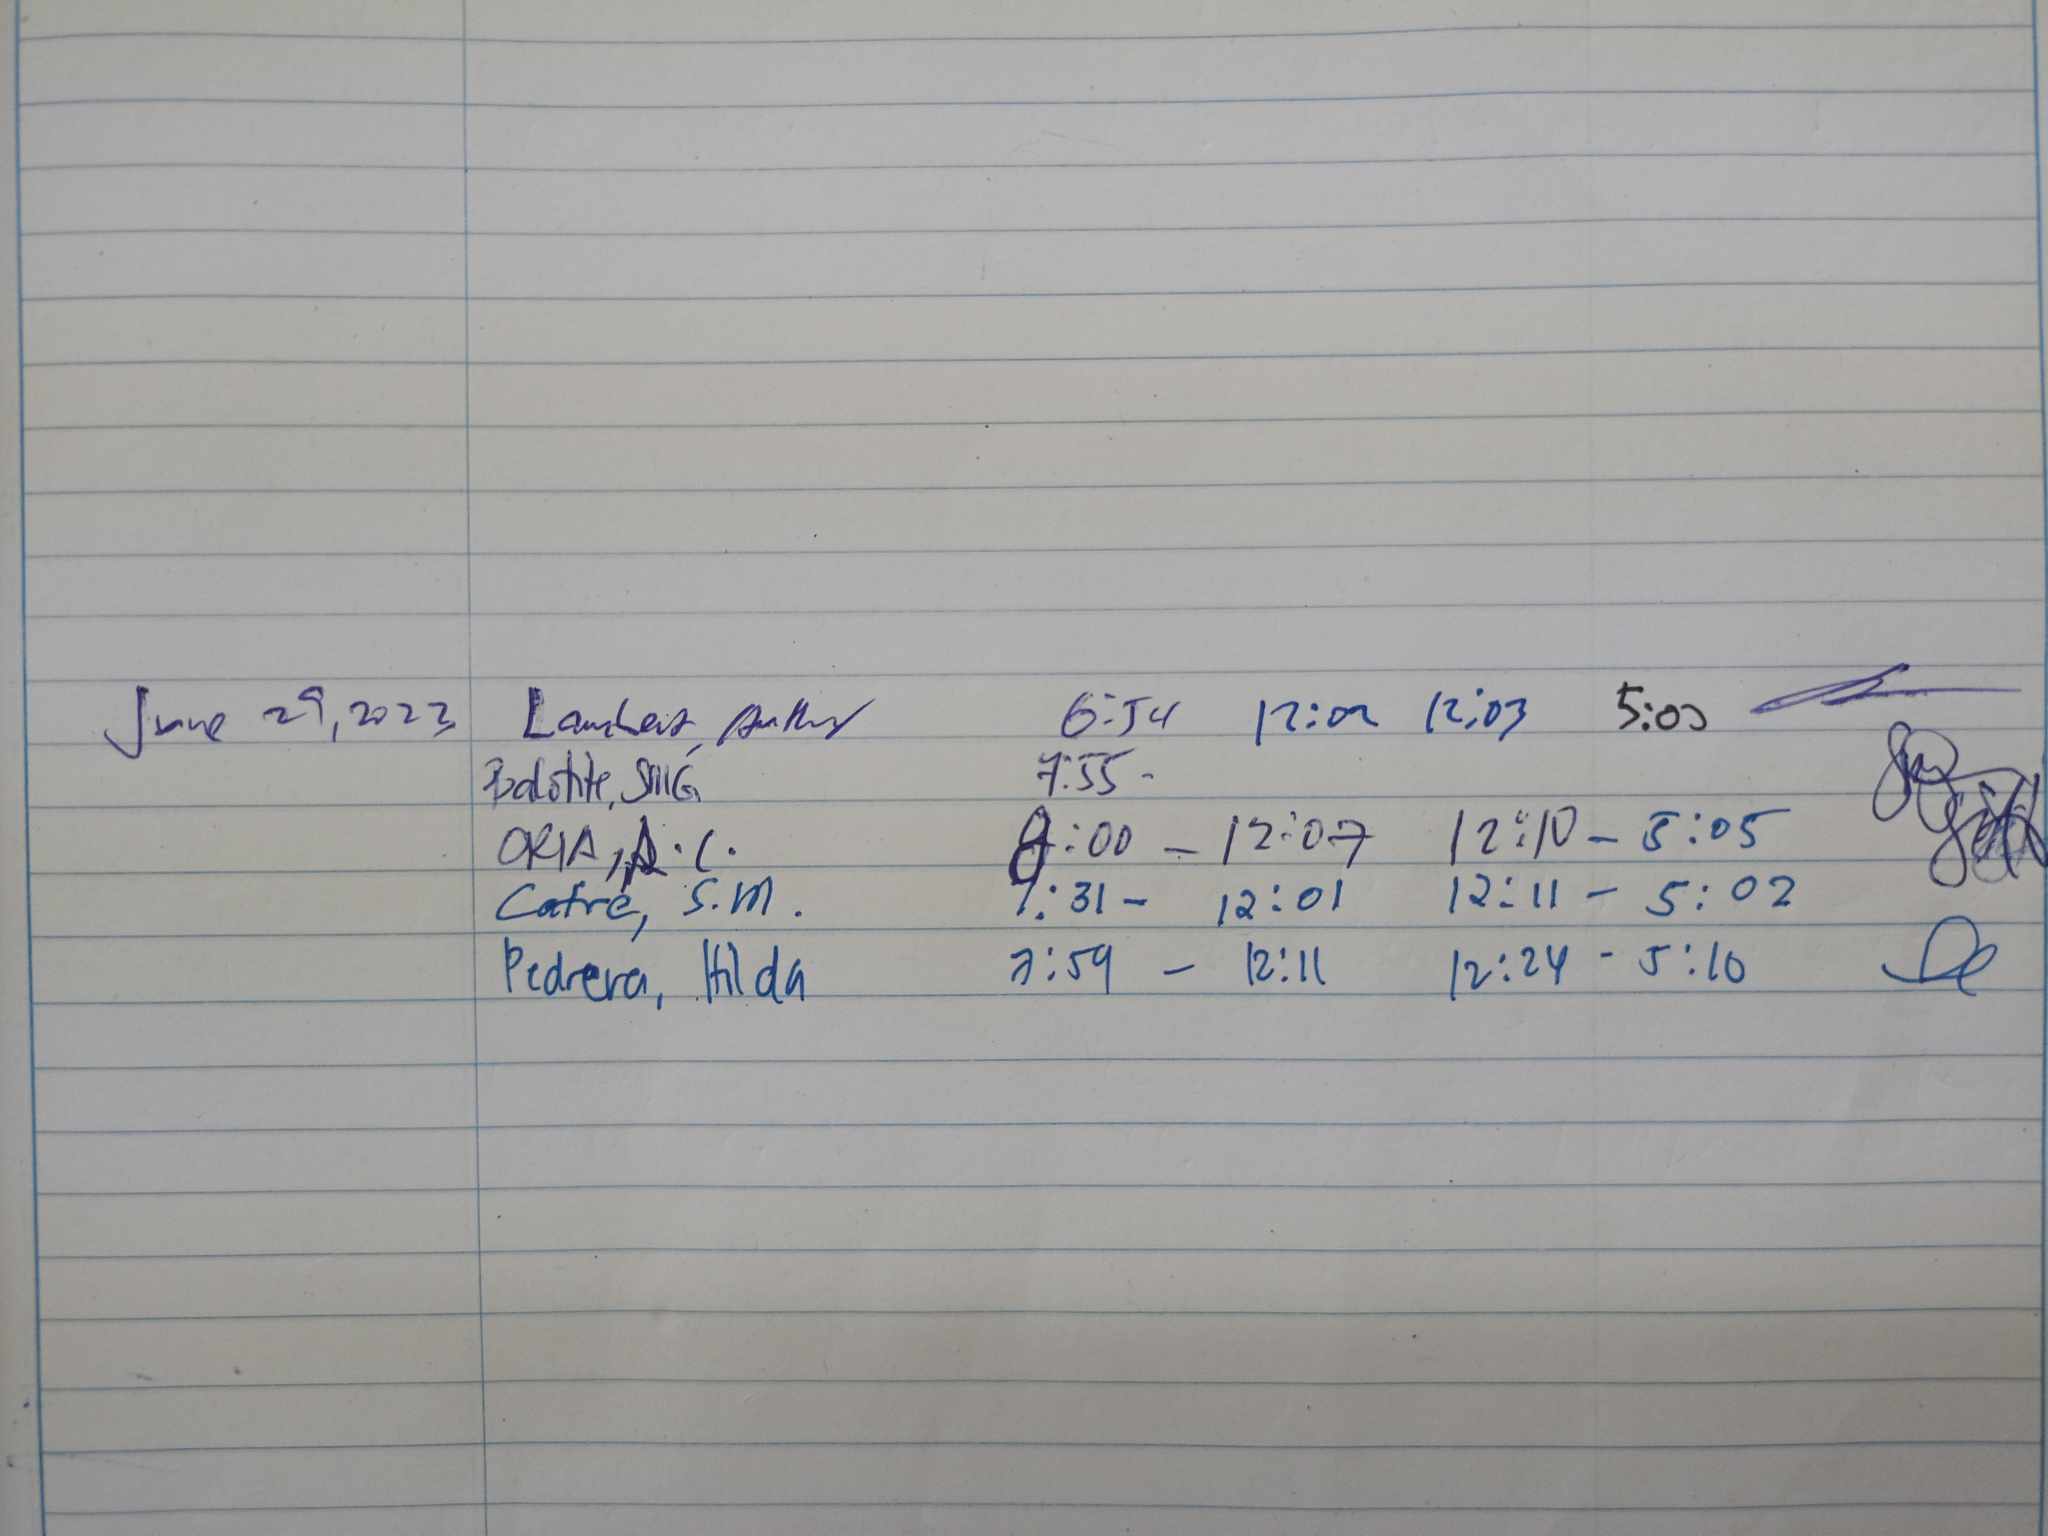 June 29, 2023 Lambert, Anthony 6:54 12:02 12:03 5:00
7:55 -
ORIA, A.C. 8:00 - 12:07 12:10 - 5:05
Catre, S.M. 7:31 - 12:01 12:11 - 5:02
Pedrera, Hilda 7:59 - 12:11 12:24 - 5:10